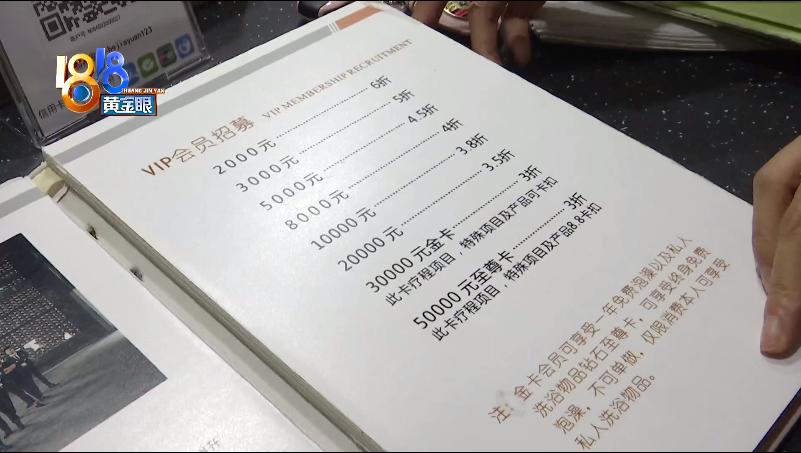 1818
HUANG JIN YAN
黄金眼
VIP会员招募 VIP MEMBERSHIP RECRUITMENT
2000元 6折
3000元 5折
5000元 4.5折
8000元 4折
10000元 3.8折
20000元 3.5折
30000元金卡 3折
此卡疗程项目，特殊项目及产品可卡扣
50000元至尊卡 3折
此卡疗程项目，特殊项目及产品8.8卡扣
注：金卡会员可享受一年免费泡澡以及私人
洗浴物品钻石至尊卡，可享受终身免费
泡澡，不可单做，仅限消费本人可享受
私人洗浴物品。